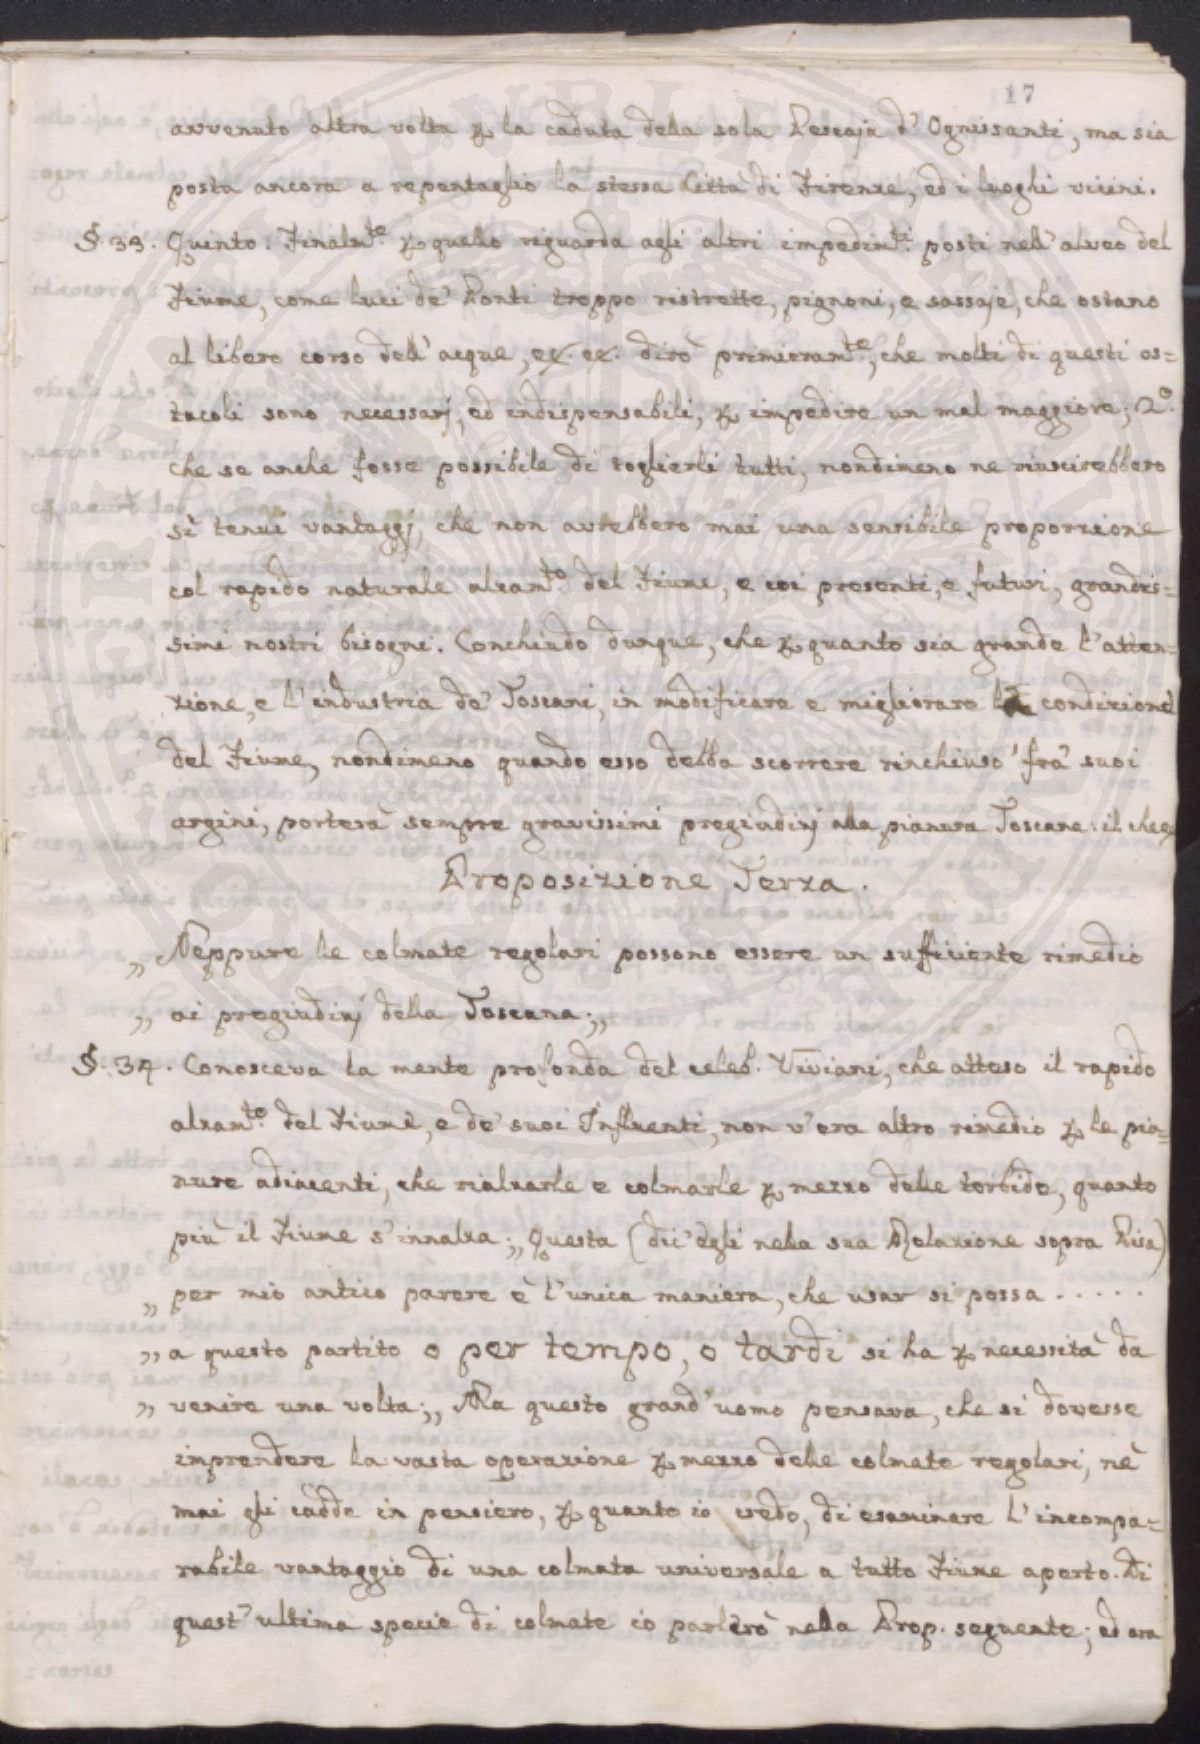 17
avvenuto altra volta p la caduta della sola Pescaja d' Ognissanti, ma sia
posta ancora a repentaglio la stessa Città di Firenze, ed i luoghi vicini.
§. 33. Quinto: Finalm.te p quello riguarda agli altri impedim.ti posti nell' alveo del
Fiume, come luci de' Ponti troppo ristrette, pignoni, e sassaje, che ostano
al libero corso dell' acque, ec. ec. dirò primieram.te, che molti di questi os=
tacoli sono necessarj, ed indispensabili, p impedire un mal maggiore; 2.o
che se anche fosse possibile di toglierli tutti, nondimeno ne riuscirebbero
sì tenui vantaggj, che non avrebbero mai una sensibile proporzione
col rapido naturale alzam.to del Fiume, e coi presenti, e futuri, grandis=
simi nostri bisogni. Conchiudo dunque, che p quanto sia grande l' atten=
zione, e l' industria de' Toscani, in modificare e migliorare la condizione
del Fiume, nondimeno quando esso debba scorrere rinchiuso frà suoi
argini, porterà sempre gravissimi pregiudizj alla pianura Toscana: il che
Proposizione Terza.
„ Neppure le colmate regolari possono essere un sufficiente rimedio
„ ai pregiudizj della Toscana.„
§. 34. Conosceva la mente profonda del celeb. Viviani, che atteso il rapido
alzam.to del Fiume, e de' suoi Influenti, non v' era altro rimedio p le pia=
nure adiacenti, che rialzarle e colmarle p mezzo delle torbide, quanto
più il Fiume s' innalza: „ Questa (dic' egli nella sua Relazione sopra Pisa)
„ per mio antico parere è l' unica maniera, che usar si possa . . . . .
„ a questo partito o per tempo, o tardi si ha p necessità da
„ venire una volta;„ Ma questo grand' uomo pensava, che si dovesse
imprendere la vasta operazione p mezzo delle colmate regolari, nè
mai gli cadde in pensiero, p quanto io credo, di esaminare l' incompa=
rabile vantaggio di una colmata universale a tutto Fiume aperto. Di
quest' ultima specie di colmate io parlerò nella Prop. seguente; ed ora